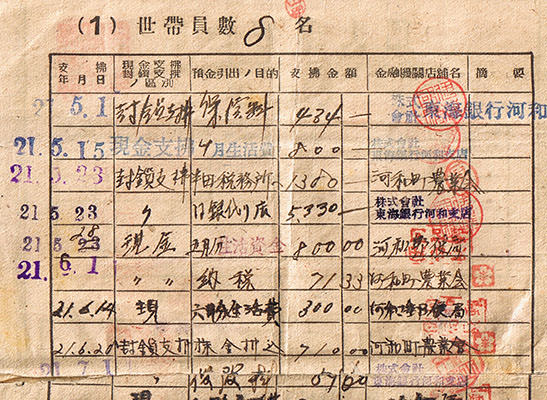 (1) 世帶員數 8 名
支拂年月日 現金支拂封鎖支拂ノ區別 預金引出ノ目的 支拂金額 金融機關店舖名 摘要
21.5.1 封鎖支拂 保険料 434 — 株式會社 東海銀行河和
21.5.15 現金支拂 月生活 800 — 株式會社
21.5.23 封鎖支拂 半田税務所へ 1380 — 河和町農業会
21 5 23 〃 日銀代り店 5,330 — 株式會社 東海銀行河和支店
21 5 28 現金 五月分 生活資金 800 00 河和
21.6.1 〃 〃 納税 71 33 河和町農業会
21.6.14 現 六月分生活費 300 00 河和 局
21.6.20 封鎖支拂 金拂込 710 00 河和町農業会
21.7.1 〃 株式會社